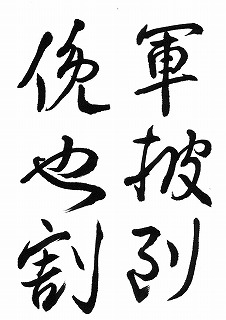 軍披到
俛也割